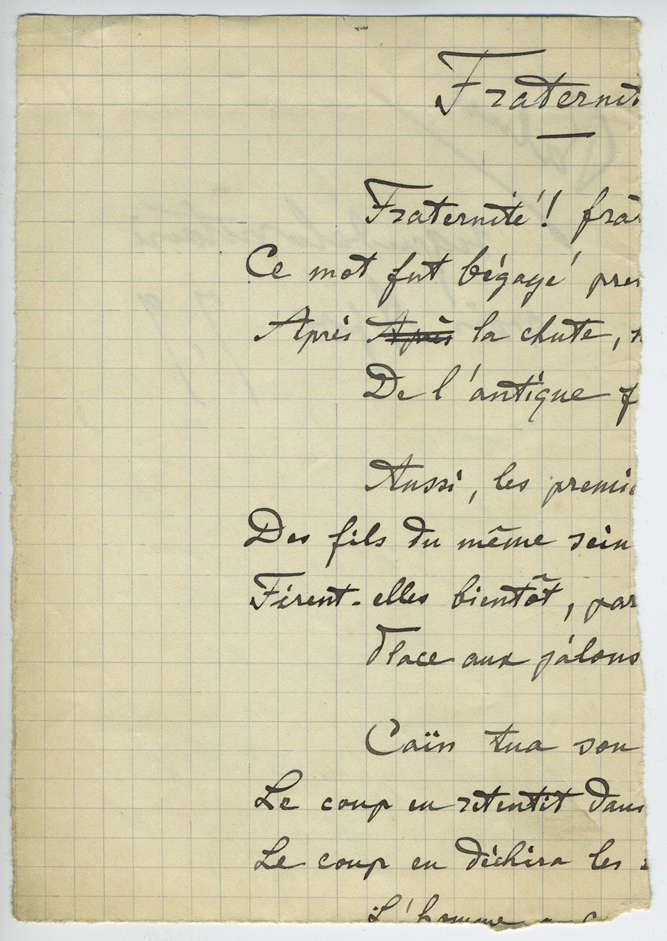 Fraternit
Fraternité! fra
Ce mot fut bégayé pre
Après Après la chute,
De l'antique f
Aussi, les premi
Des fils du même sein
Firent-elles bientôt, par
Place aux jalous
Caïn tua son
Le coup en retentit dans
Le coup en déchira les
L'homme a